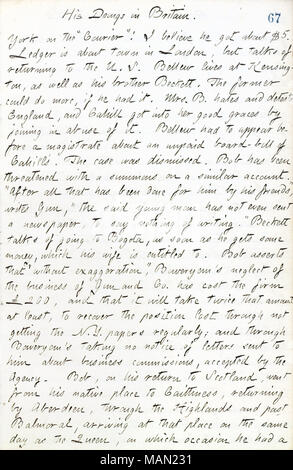 His Doings in Britain.
67
York on the "Courier". I believe he got about $35.
Ledger is about town in London, but talks of
returning to the U. S. Bellew lives at Kensing-
ton, as well as his brother Beckett. The former
could do more, if he had it. Mrs. B. hates and detests
England, and Cahill got into her good graces by
joining in abuse of it. Bellew had to appear be-
fore a magistrate about an unpaid board-bill of
Cahill's. The case was dismissed. Bob has been
threatened with a summons on a similar account.
"After all that has been done for him by his friends,
writes Gun, "the said young man has not even sent
a newspaper, to say nothing of writing." Beckett
talks of going to Bogota, as soon as he gets some
money, which his wife is entitled to. Bob asserts
that "without exaggeration" Boweryem's neglect of
the business of Gun and Co. has cost the firm
£200, and that it will take twice that amount
at least, to recover the position lost through not
getting the N.Y. papers regularly, and through
Boweryem's taking no notice of letters sent to
him about business commissions, accepted by the
Agency. Bob, on his return to Scotland, went
from his native place to Caithness, returning
by Aberdeen, through the Highlands and past
Balmoral, arriving at that place on the same
day as the Queen, on which occasion he had a
alamy
Image ID: MAN231
www.alamy.com